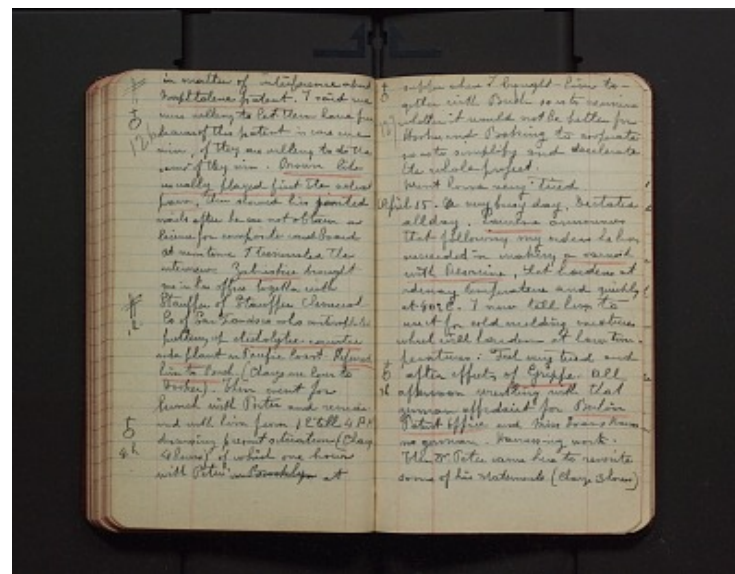 in matter of interference about
patent. I said we
were willing to let them have free
license of this patent in case we
win, if they are willing to do the
same if they win. Brown like
usually played first the
then showed his pointed
nails after he can not obtain a
license for composite cardboard
at new time I terminated the
interview. Zabriskie brought
me in his office together with
Stauffer of Stauffer Chemical
Co of San Francisco who
putting up electrolytic caustic
soda plant on Pacific Coast. Referred
him to (Charge one hour to
Hooker). Then went for
lunch with Peter and
with him from 12 till 4 P.M.
discussing present situation (Charge
4 hours) of which one hour
with Peter in Brooklyn at
supper where I brought him to-
gether with Bush so as to examine
whether it would not be better for
Hooker and to cooperate
so as to simplify and accelerate
the whole project.
Went home very tired
April 15. A very busy day. Dictated
all day. announces
that following my orders he has
succeeded in making a varnish
with that hardens at
ordinary temperature and quickly
at 40°C. I now tell him to
use it for cold molding
which will harden at low tem-
peratures. Feel very tired and
after effects of Grippe. All
afternoon wrestling with that
german affidavit for Berlin
Patent Office and Miss
no german. Harassing work.
Then Dr Peter came here to rewrite
some of his statements (Charge 3 hours)